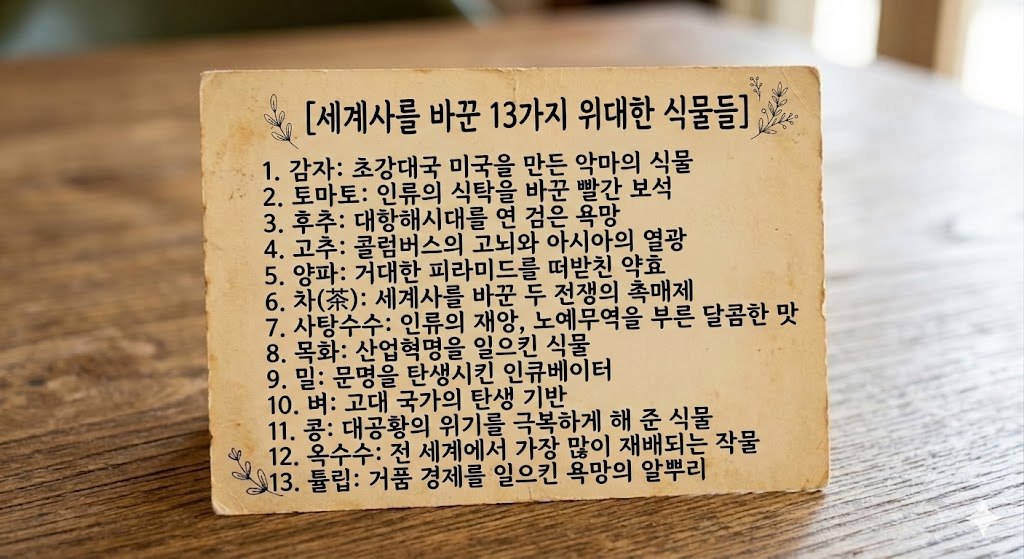 [세계사를 바꾼 13가지 위대한 식물들]
1. 감자: 초강대국 미국을 만든 악마의 식물
2. 토마토: 인류의 식탁을 바꾼 빨간 보석
3. 후추: 대항해시대를 연 검은 욕망
4. 고추: 콜럼버스의 고뇌와 아시아의 열광
5. 양파: 거대한 피라미드를 떠받친 약효
6. 차(茶): 세계사를 바꾼 두 전쟁의 촉매제
7. 사탕수수: 인류의 재앙, 노예무역을 부른 달콤한 맛
8. 목화: 산업혁명을 일으킨 식물
9. 밀: 문명을 탄생시킨 인큐베이터
10. 벼: 고대 국가의 탄생 기반
11. 콩: 대공황의 위기를 극복하게 해 준 식물
12. 옥수수: 전 세계에서 가장 많이 재배되는 작물
13. 튤립: 거품 경제를 일으킨 욕망의 알뿌리